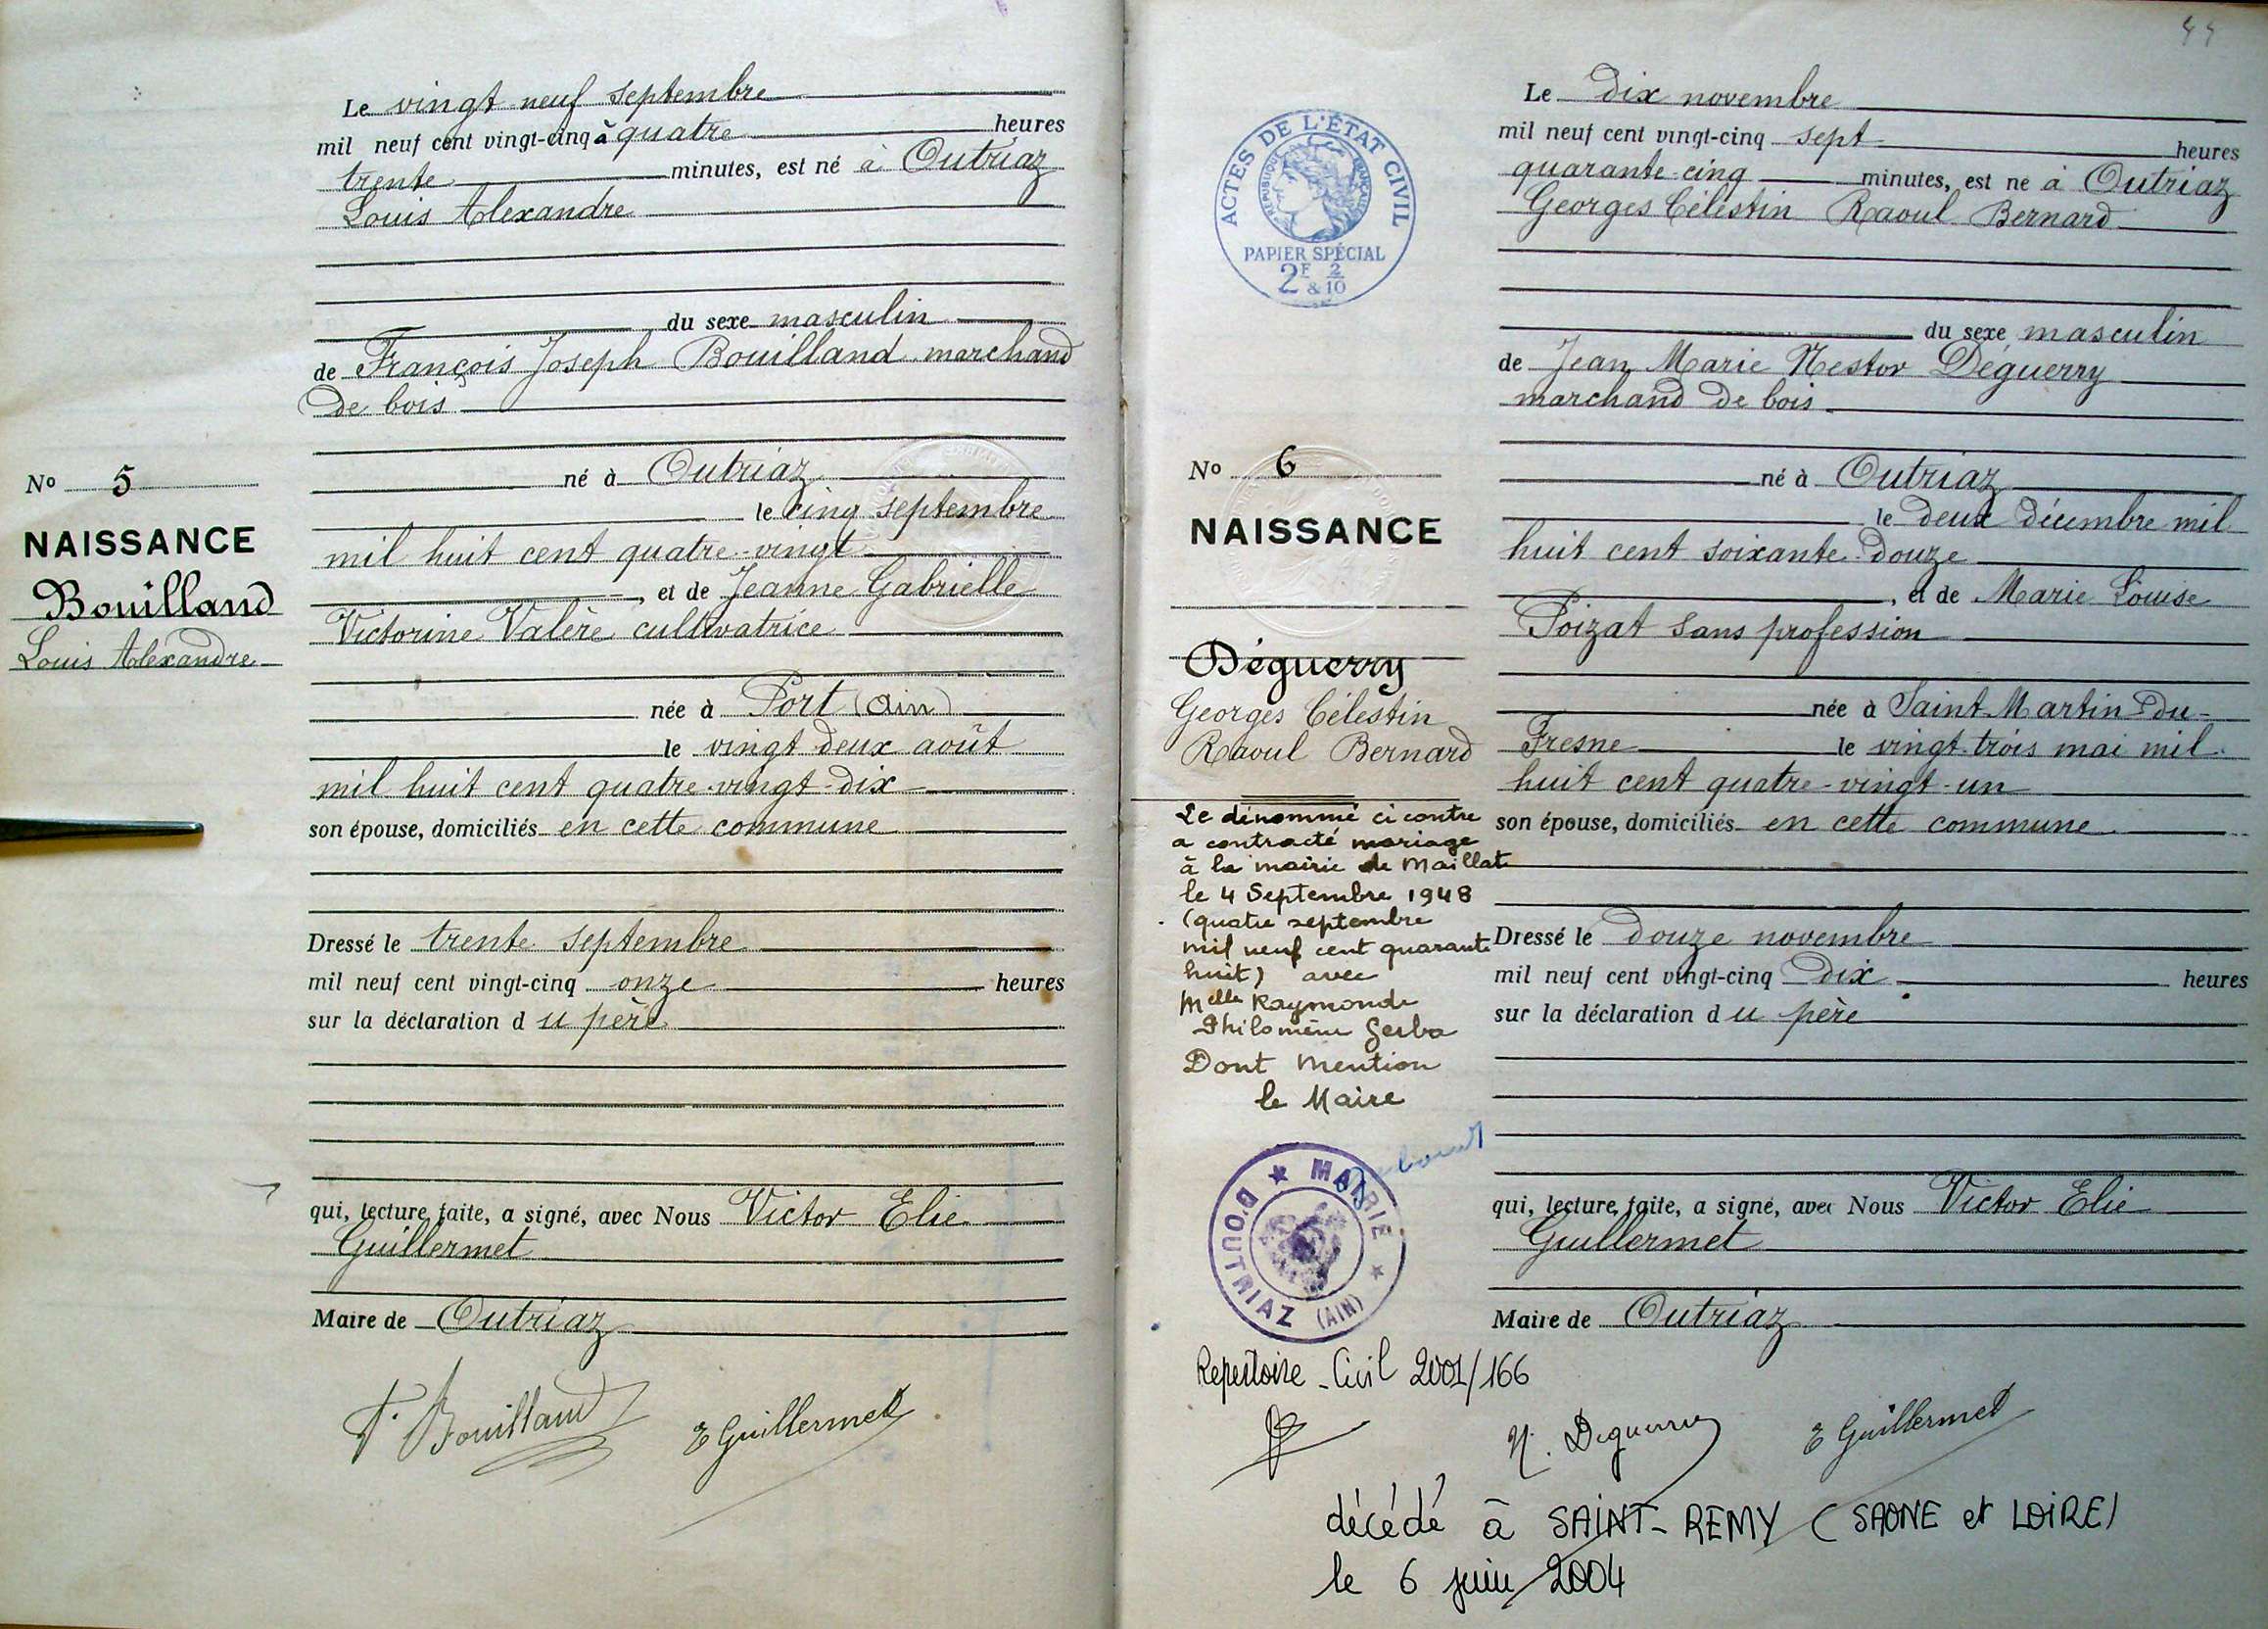 Le vingt neuf septembre
mil neuf cent vingt-cinq à quatre heures
trente minutes, est né à Outriaz
Louis Alexandre
du sexe masculin
de François Joseph Bouilland marchand
de bois
né à Outriaz
le cinq septembre
mil huit cent quatre-vingt
, et de Jeanne Gabrielle
Victorine Valère cultivatrice
née à Port (Ain)
le vingt deux août
mil huit cent quatre-vingt-dix
son épouse, domiciliés en cette commune
Dressé le trente septembre
mil neuf cent vingt-cinq onze heures
sur la déclaration du père
qui, lecture faite, a signé, avec Nous Victor Elie
Guillermet
Maire de Outriaz
F. Bouilland E Guillermet
No 5
NAISSANCE
Bouilland
Louis Alexandre
44
ACTES DE L'ÉTAT CIVIL
RÉPUBLIQUE FRANÇAISE
PAPIER SPÉCIAL
2F & 2/10
No 6
NAISSANCE
Déguerry
Georges Célestin
Raoul Bernard
Le dénommé ci contre
a contracté mariage
à la mairie de Maillat
le 4 Septembre 1948
(quatre septembre
mil neuf cent quarante
huit) avec
Melle Raymonde
Philomène Gerba
Dont Mention
le Maire
MAIRIE D'OUTRIAZ (AIN)
Repertoire-Civil 2001/166
Le dix novembre
mil neuf cent vingt-cinq sept heures
quarante-cinq minutes, est né à Outriaz
Georges Célestin Raoul Bernard
du sexe masculin
de Jean Marie Nestor Déguerry
marchand de bois
né à Outriaz
le deux décembre mil
huit cent soixante-douze
, et de Marie Louise
Poizat sans profession
née à Saint-Martin-du-
Fresne le vingt-trois mai mil
huit cent quatre-vingt-un
son épouse, domiciliés en cette commune
Dressé le douze novembre
mil neuf cent vingt-cinq dix heures
sur la déclaration du père
qui, lecture faite, a signé, avec Nous Victor Elie
Guillermet
Maire de Outriaz
N. Deguerry E Guillermet
décédé à SAINT-REMY (SAONE et LOIRE)
le 6 juin 2004